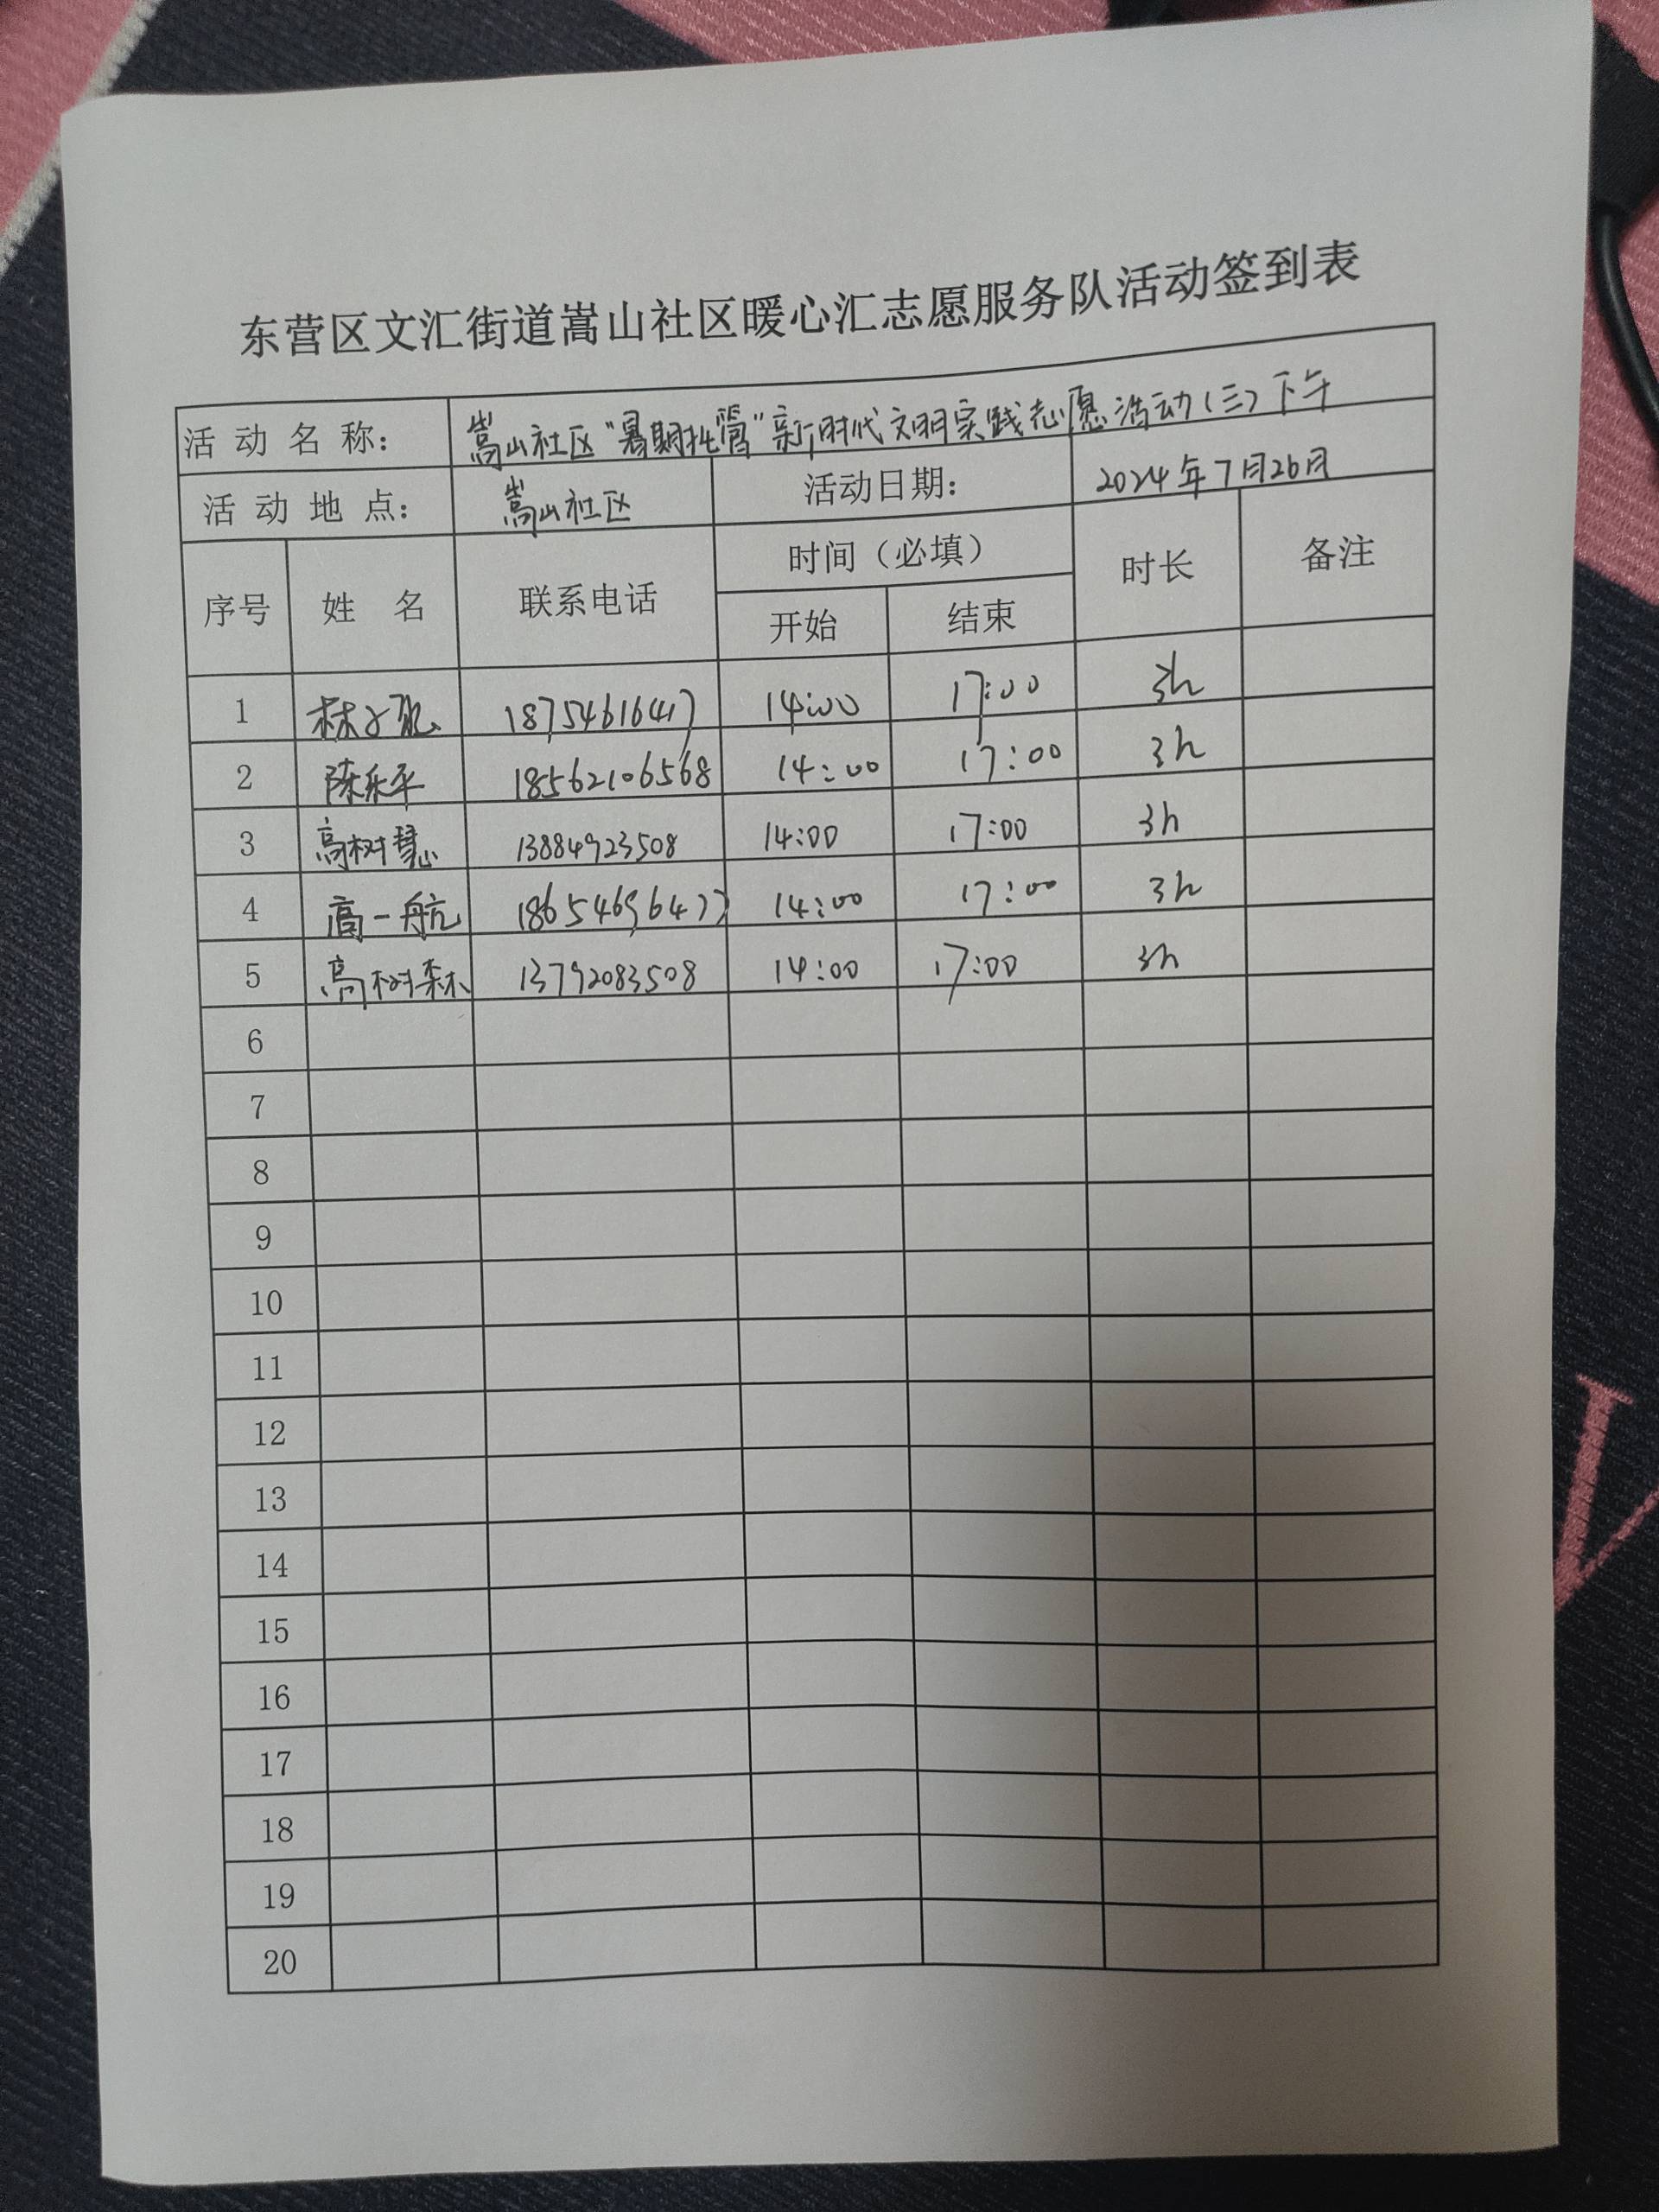 东营区文汇街道嵩山社区暖心汇志愿服务队活动签到表
活动名称： 嵩山社区“暑期托管”新时代文明实践志愿活动（三）下午
活动地点： 嵩山社区 活动日期： 2024年7月26日
序号 姓 名 联系电话 时间（必填） 时长 备注
开始 结束
1 林子 18754616417 14:00 17:00 3h
2 陈乐平 18562106568 14:00 17:00 3h
3 高树慧 13884923508 14:00 17:00 3h
4 高一航 18654696477 14:00 17:00 3h
5 高树森 13792083508 14:00 17:00 3h
6
7
8
9
10
11
12
13
14
15
16
17
18
19
20